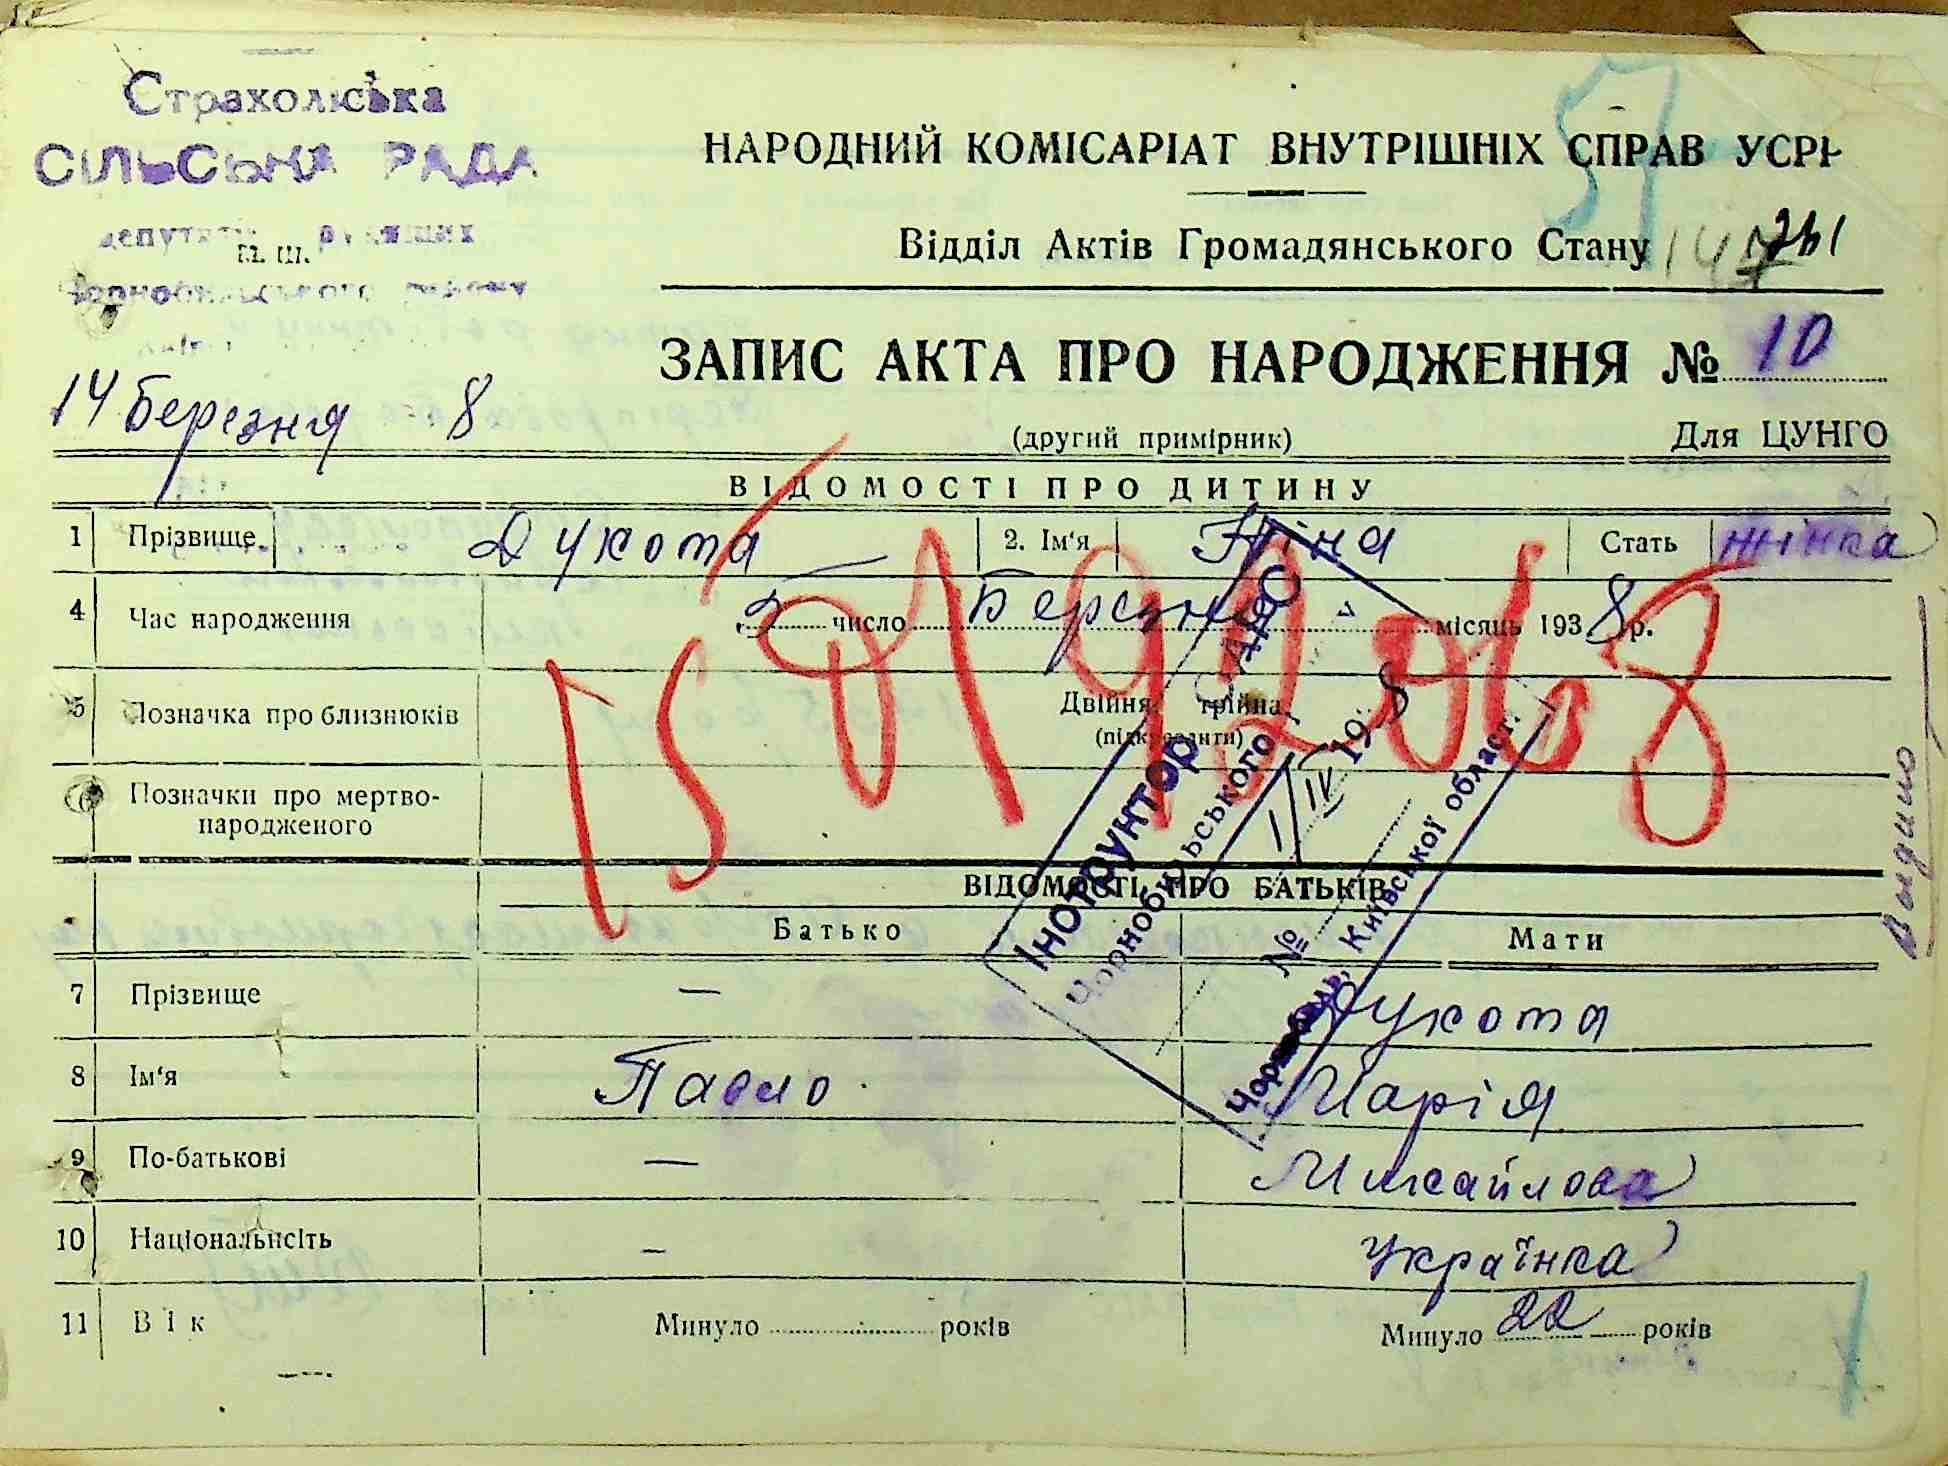 Страхоліська
СІЛЬСЬКА РАДА
НАРОДНИЙ КОМІСАРІАТ ВНУТРІШНІХ СПРАВ УСРР
57
Відділ Актів Громадянського Стану
147
ЗАПИС АКТА ПРО НАРОДЖЕННЯ № 10
14 Березня 8
(другий примірник) Для ЦУНГО
ВІДОМОСТІ ПРО ДИТИНУ
1 Прізвище Дукота 2. Ім'я Ніна Стать жінка
4 Час народження 5 число Березня місяць 1938 р.
5 Позначка про близнюків Двійня, трійна
(підкреслити)
6 Позначки про мертво-
народженого
ВІДОМОСТІ ПРО БАТЬКІВ
Батько Мати
7 Прізвище — Дукота
8 Ім'я Павло Марія
9 По-батькові — Михайлова
10 Національність — Українка
11 Вік Минуло роківМинуло 22 років
Інструктор ЗАГС
Чорнобильського
№
Чорнобиль, Київської област.
Видано